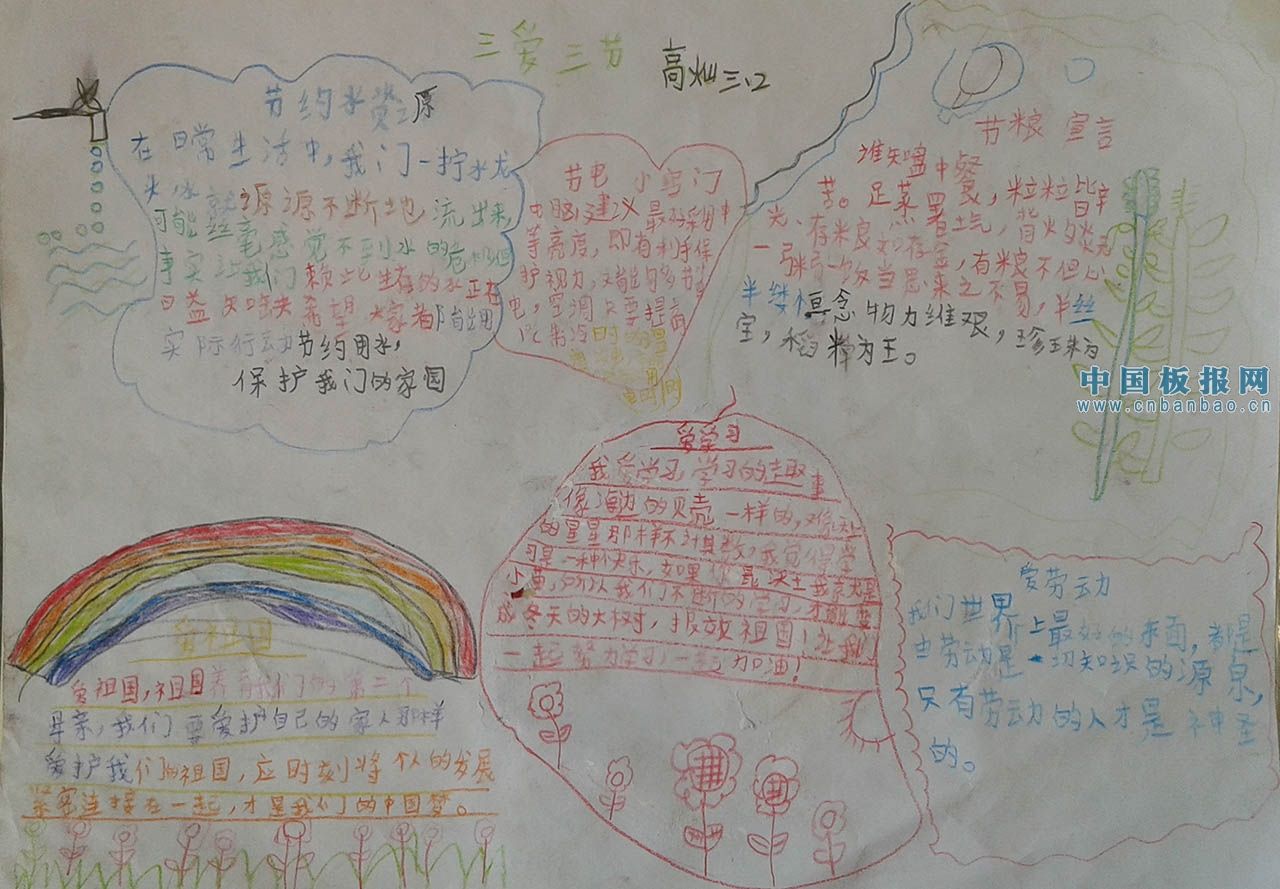 三爱三节
高灿三、2
节约水资源
在日常生活中,我门一拧水龙
头,水就源源不断地流出来,
可能丝毫感觉不到水的危机但
事实让我们赖比生存的水正在
日益知缺希望大家者用
实际行动节约用水,
保护我门的家园
节电小窍门
电脑建议最好采用中
等亮度,即有利于保
护视力,又能够节省
电,空调只要提前
节粮宣言
谁知盘中餐,粒粒皆辛
苦。足蒸暑土气,背火灼炎天
光、存米良如存金,有粮不但心
一粥一饭当思来之不易,半丝
半缕恒念物力维艰,珍珠为
宝,稻粮为王。
中国板报网
www.cnbanbao.cn
爱学习
我爱学习,学习的趣事
像海边的贝壳一样的,
的星星那样不计其数,我觉得学
习是一种快乐,如果你
小苗,所以我们不断的学习,才
成冬天的大树,报效祖国!让我们
一起努力学习,一起加油!
爱劳动
我们世界上最好的东西,都是
由劳动是一切知识的源泉,
只有劳动的人才是神圣
的。
爱祖国
爱祖国,祖国养育我们的第二个
母亲,我们要爱护自己的家人那样
爱护我们的祖国,应时刻将个的发展
紧密连接在一起,才是我们的中国梦。